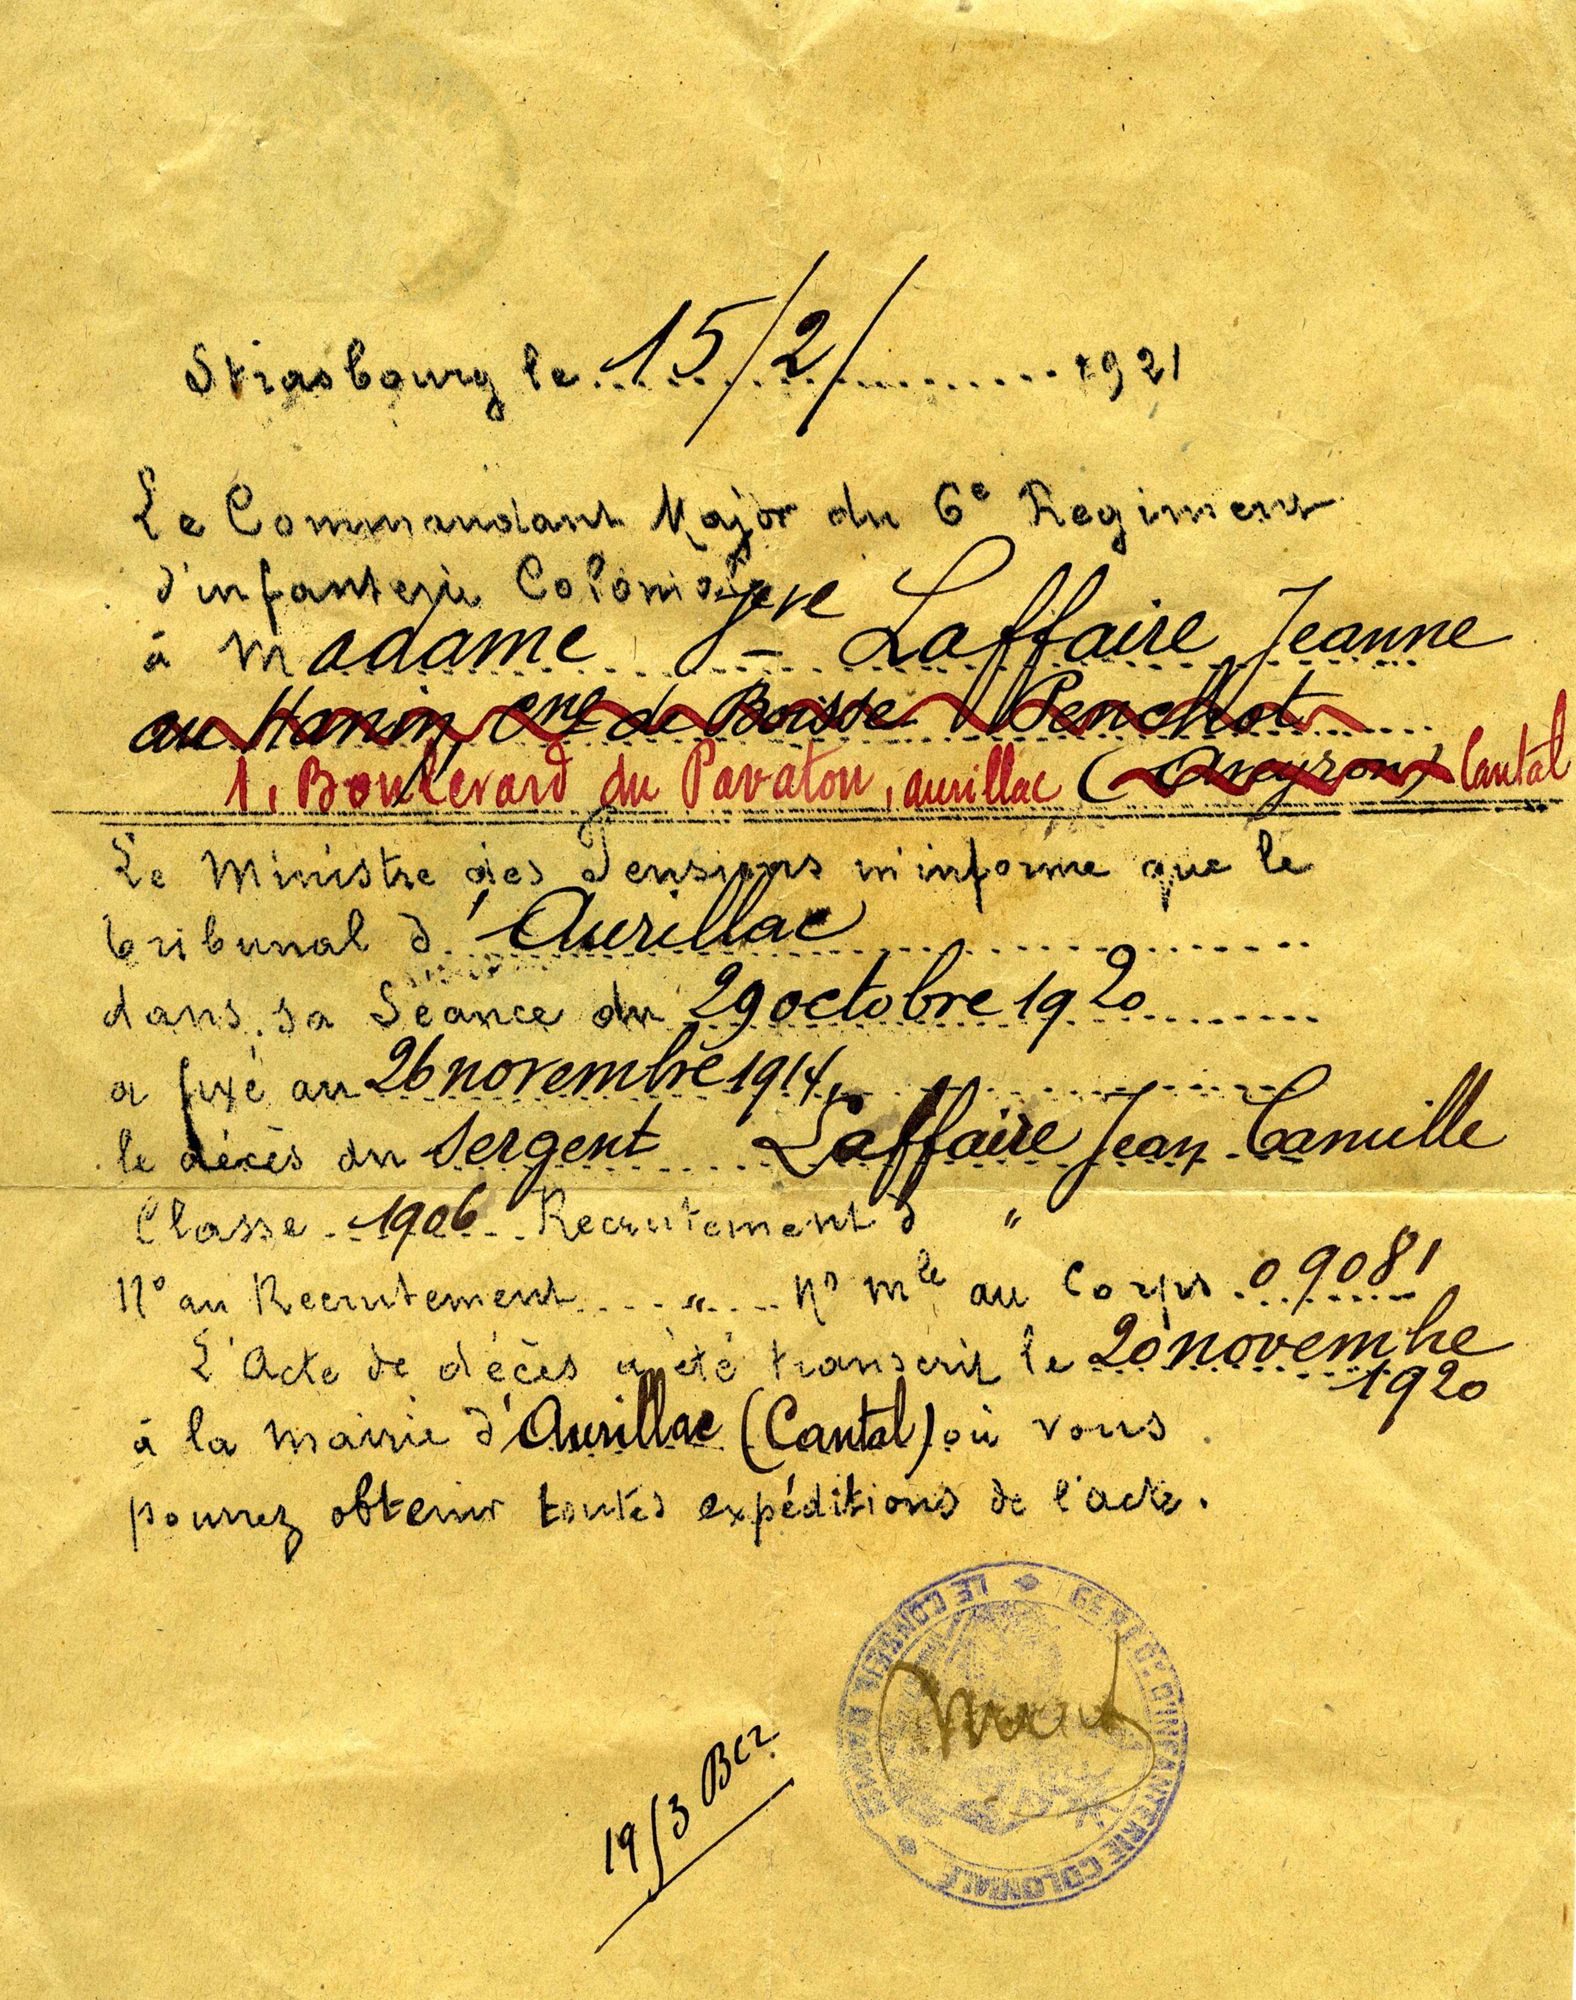 Strasbourg le 15/2/ 1921
Le Commandant Major du 6e Regiment
d'infanterie Coloniale
à Madame Vve Laffaire Jeanne
au Hanin, Cne de Boisse Penchot
1, Boulevard du Pavatou, Aurillac (Aveyron) Cantal
Le Ministre des Pensions m'informe que le
tribunal d'Aurillac
dans sa Séance du 29 octobre 1920
a fixé au 26 novembre 1914,
le décès du Sergent Laffaire Jean Camille
Classe 1906 Recrutement d "
No au Recrutement " No mle au Corps 09081
L'Acte de décès a été transcrit le 20 novembre
1920
à la mairie d'Aurillac (Cantal) où vous
pourrez obtenir toutes expéditions de l'acte.
LE CONSEIL D'ADMI
D'INFANTERIE COLONIALE
19/3 Bcr